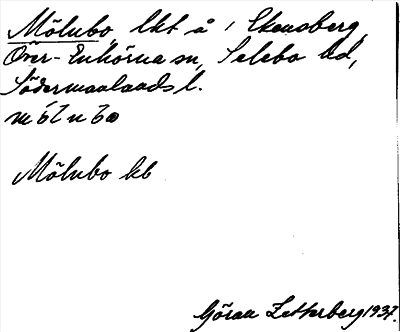 Mölnbo lkt å 1 Ekensberg,
Över-Enhörna sn, Selebo hd,
Södermanlands l.
Mölnbo kb
Göran Zetterberg 1937.